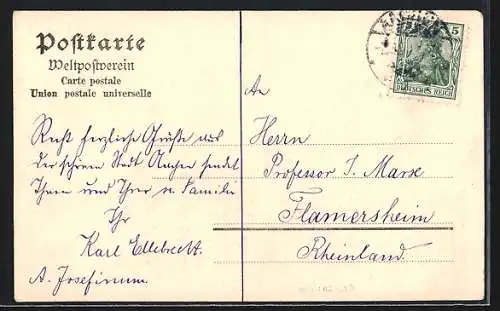 Postkarte
Weltpostverein
Carte postale
Union postale universelle
An
Recht herzliche Grüße aus
der schönen Stadt Aachen sendet
Ihnen und Ihrer w. Familie
Ihr
Karl Ellebrecht.
A. Josefinum.
Herrn
Professor J. Marx
Flamersheim
Rheinland.
AACHEN
5
DEUTSCHES REICH